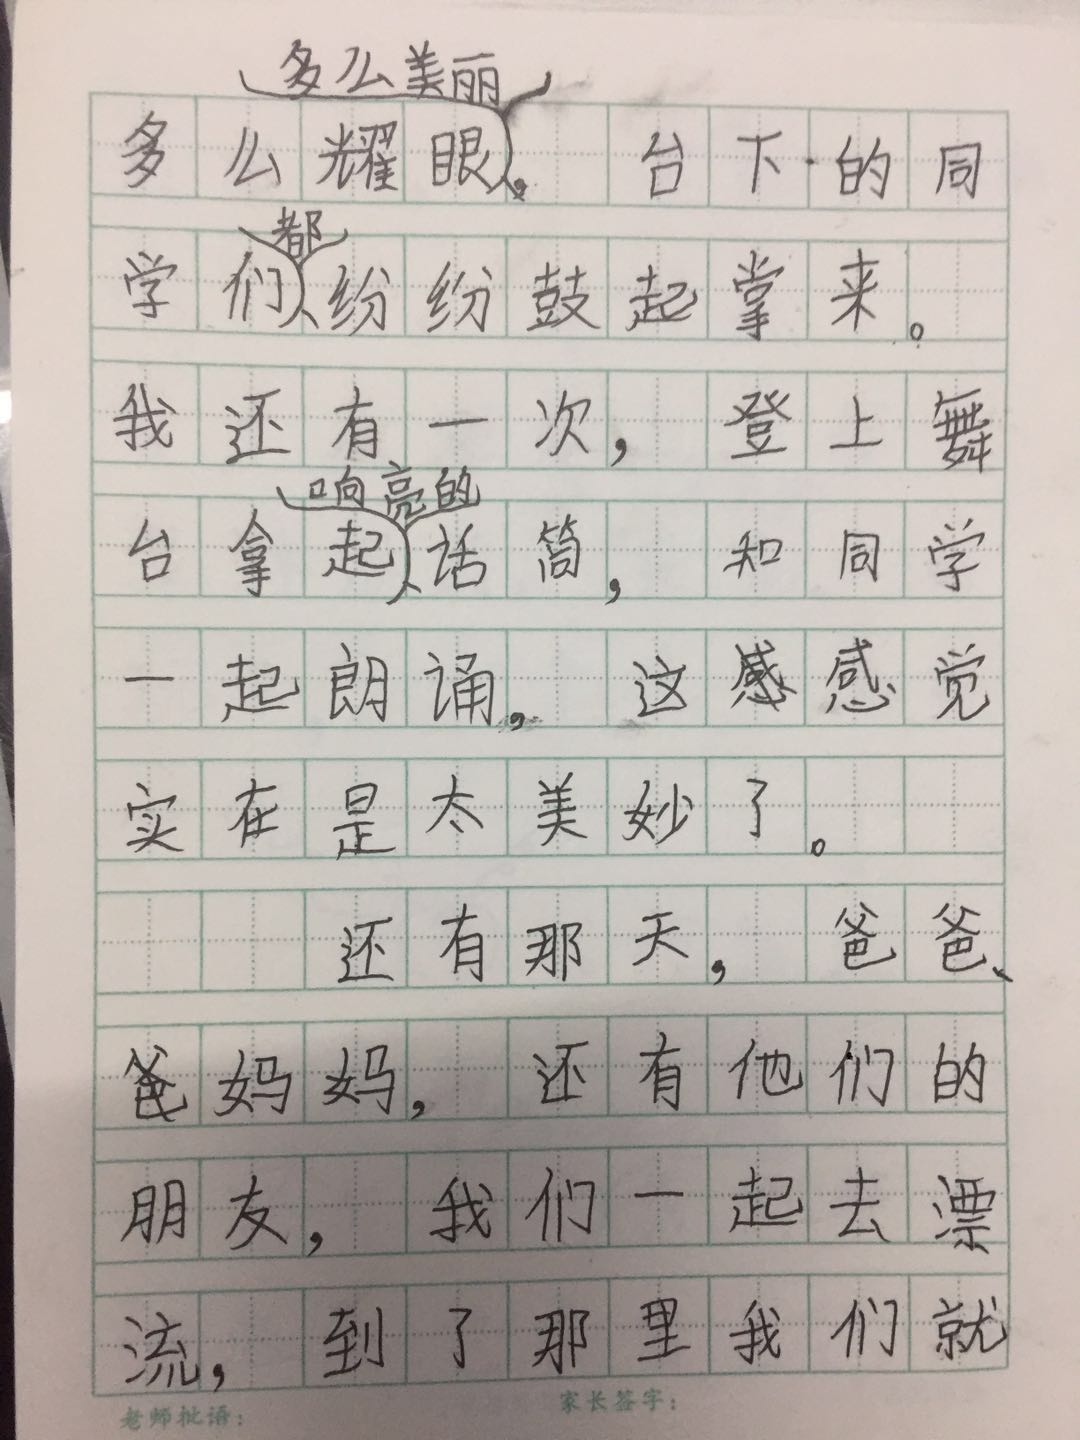 多么美丽
多么耀眼，台下的同
都
学们纷纷鼓起掌来。
我还有一次，登上舞
响亮的
台拿起话筒，和同学
一起朗诵，这感感觉
实在是太美妙了。
还有那天，爸爸、
爸妈妈，还有他们的
朋友，我们一起去漂
流，到了那里我们就
老师批语：
家长签字：